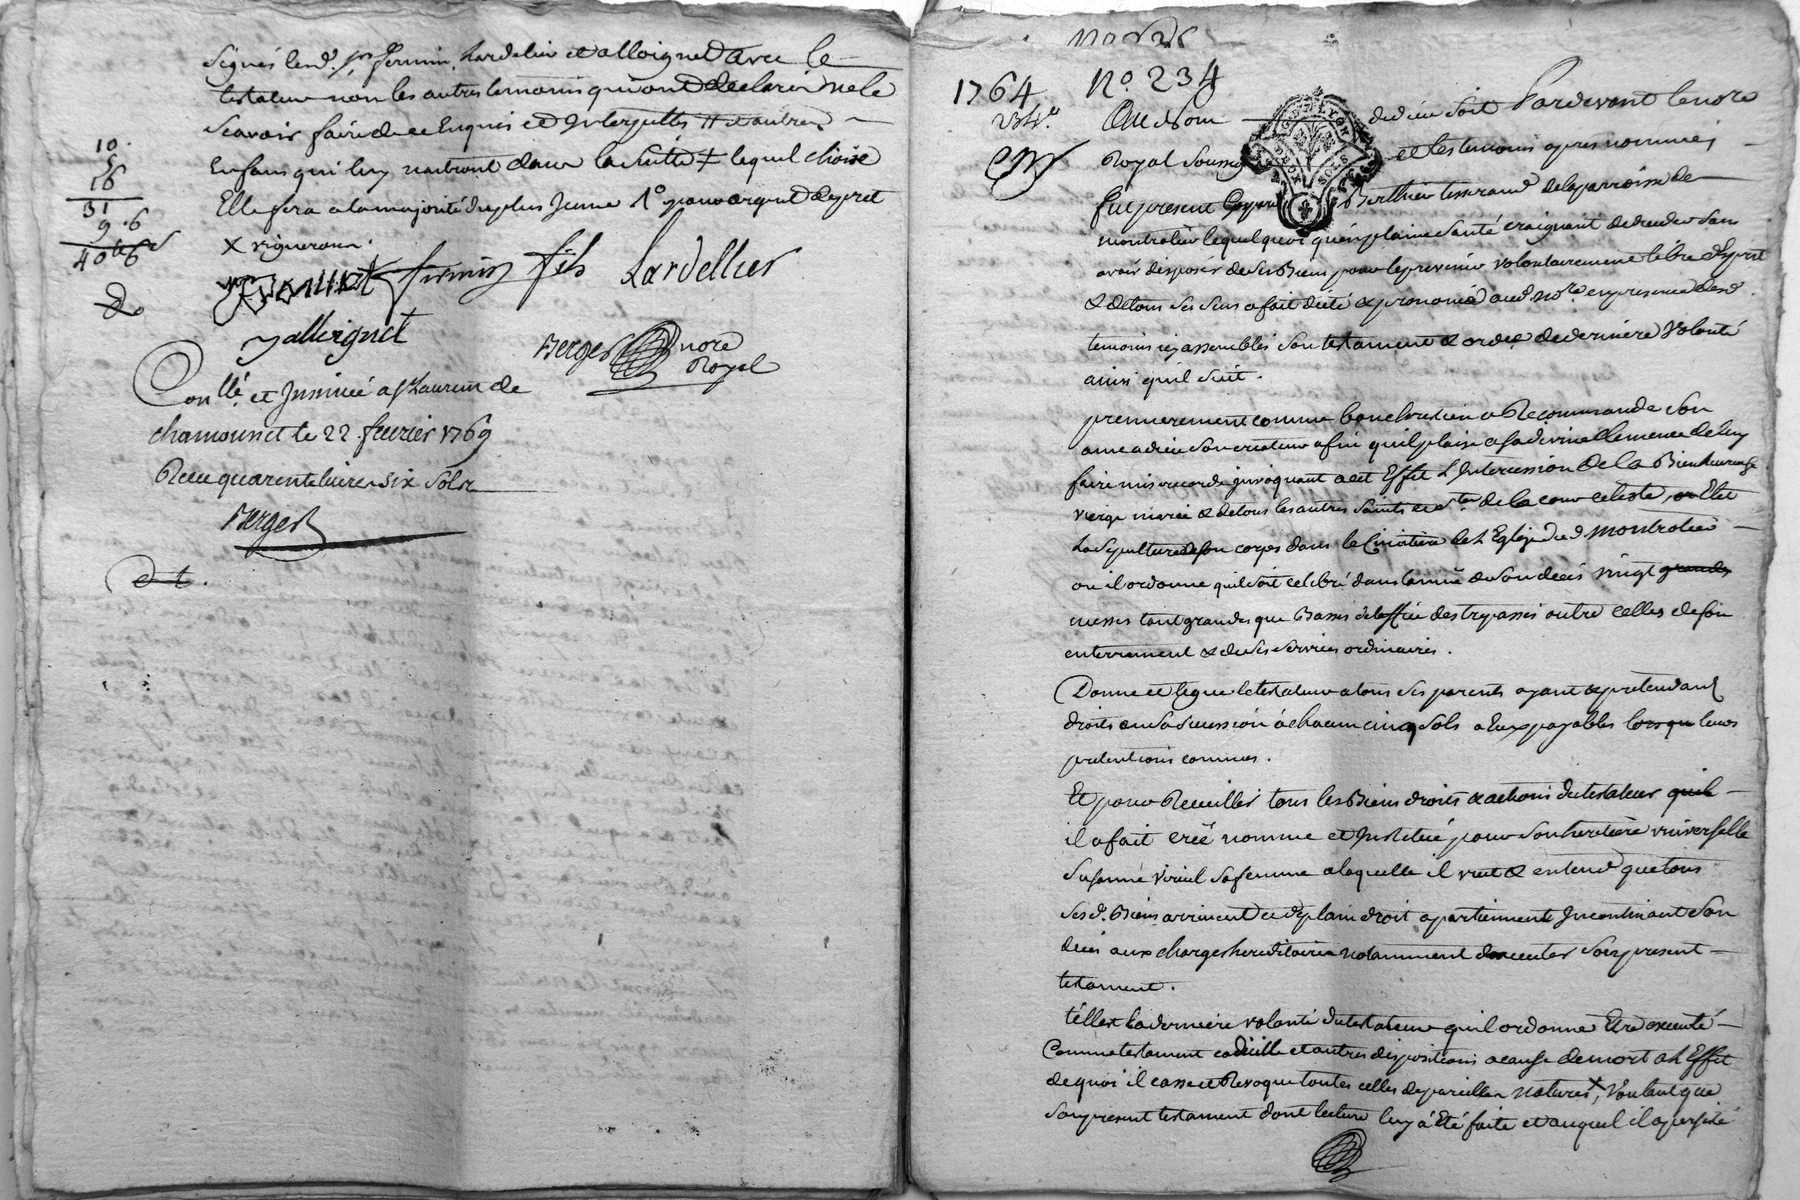 signés led. Sr fermin, Lardelier et alloignet avec le
testateur non les autres temoins qui ont declaré ne le
scavoir faire de ce enquis et Interpellés # et autres
Enfans qui luy naitront dans la suitte ≠ lequel choise
Elle fera a la majorité du plus jeune 1° pour argent de pret
x vigneron.
10.
5
16
31
9.6
40tt 6s
fermin fils Lardellier
yalloignet
Berger nore
Royal
Conllé. et Insinué a St Laurent de
chamousset le 22 fevrier 1769
Receu quarente livres six sols
Berger
1764
No. 234
Au Nom de dieu soit Pardevant le nore
Royal soussigné et les temoins apres nommés
fut present Berthier tisserand de la parroisse de
montrotier lequel quoi qu'en pleine santé craignant de deceder sans
avoir disposés de ses Biens pour le prevenir volontairement libre d'esprit
& de tous ses sens a fait dicté & prononcé aud. nore. en presence desd.
temoins icy assemblés son testament & ordce de derniere volonté
ainsi qu'il suit.
premierement comme bon chretien a Recommandé son
ame a dieu son createur afin qu'il plaise a sa divine clemence de luy
faire misericorde invoquant a cet Effet L'Intercession de la Bienheureuse
vierge marie & de tous les autres saints et stes de la cour celeste, Elit
La sepulture de son corps dans le Cimetiere de L'Eglize dud. montrotier
ou il ordonne qu'il soit celebré dans l'année de son decés vingt grandes
messes tant grandes que Basses de l'office des trepassés outre celles de son
enterrement & de ses services ordinaires.
Donne et legue le testateur a tous ses parents ayant & pretendant
droits en sa succession à chacun cinq sols a Eux payables lorsque leurs
pretentions connues.
Et pour Recueillir tous les Biens droits & actions du testateur quil
il a fait créé nommé et Institué pour son heritiere universelle
Susanne viricel sa femme a laquelle il veut & entend que tous
sesd. Biens arrivent et de plain droit apartiennent Incontinant son
decés aux charges hereditaires notamment d'executer son present
testament.
telle est la derniere volonté du testateur qu'il ordonne Etre executé
Comme testament codicille et autres dispositions a cause de mort a L'Effet
de quoi il casse et Revoque toutes celles de pareilles natures, x Voulant que
son present testament dont lecture luy à été faite et auquel il a persisté